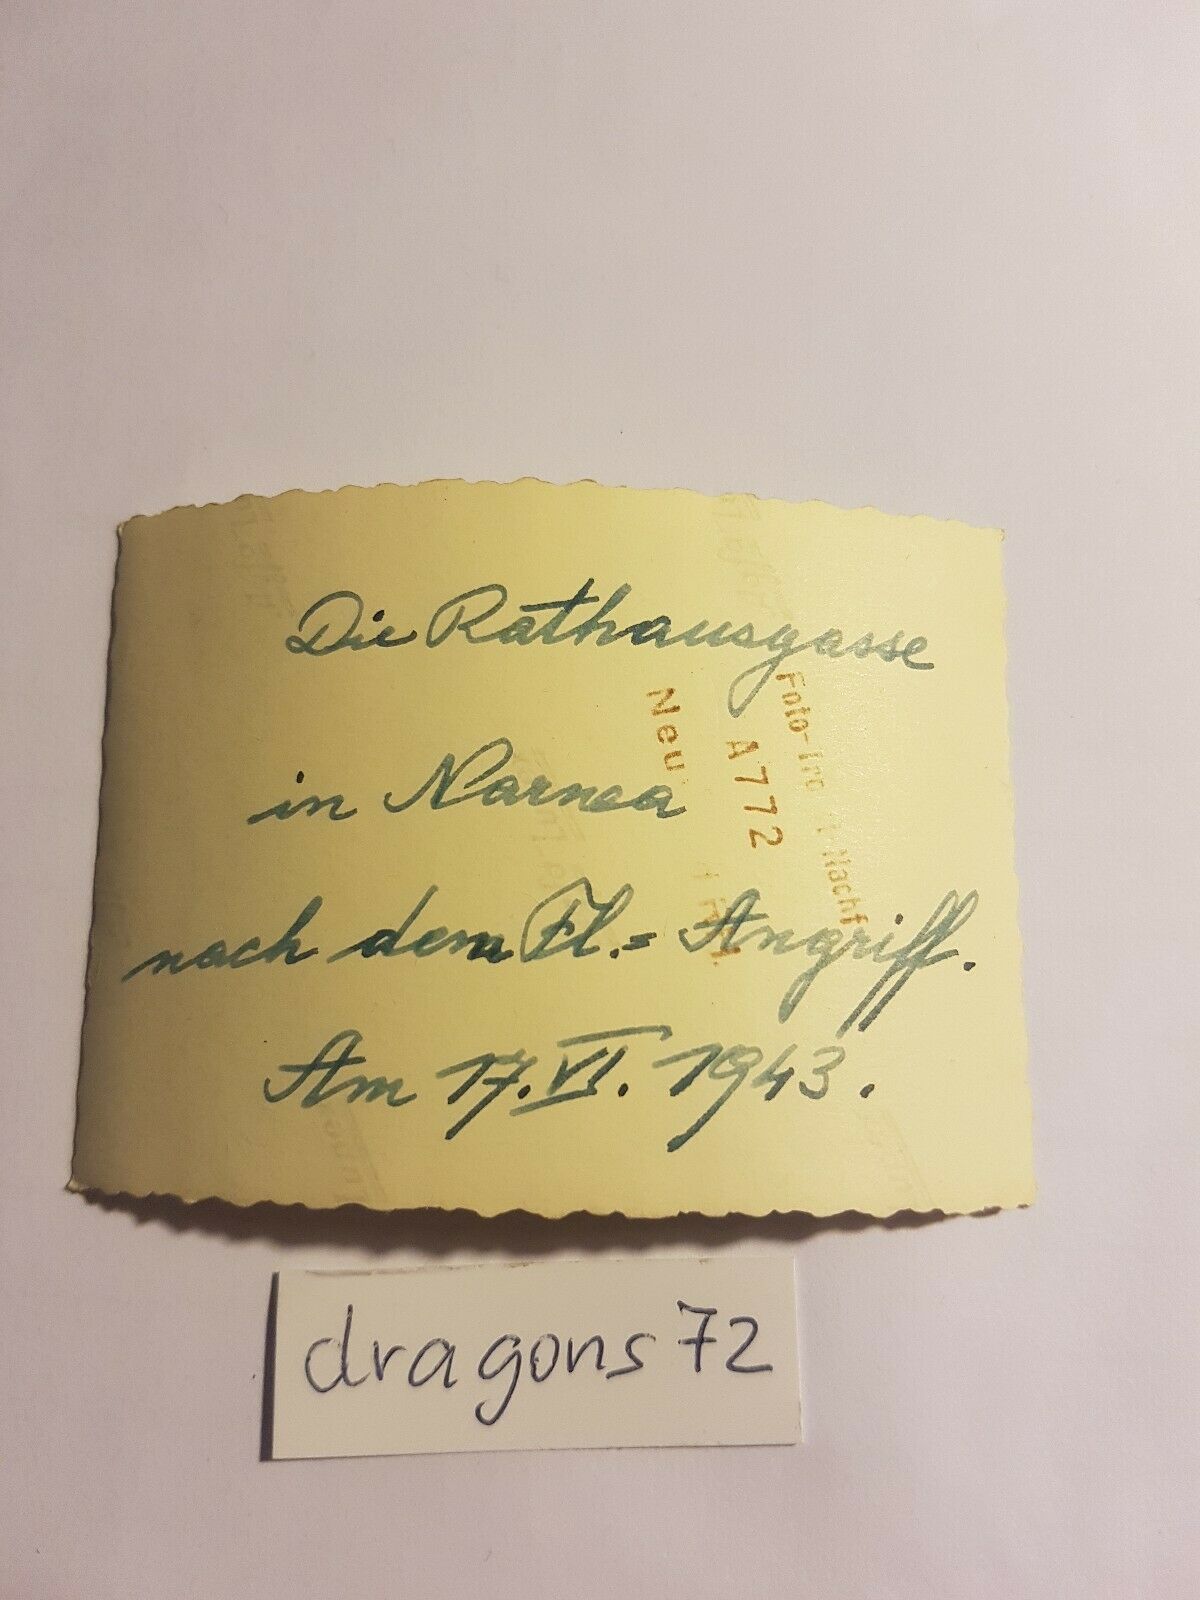 Die Rathausgasse
in Narwa
nach dem Fl.= Angriff.
Am 17. VI. 1943.
Foto- Nachf
A772
Neu
dragons72